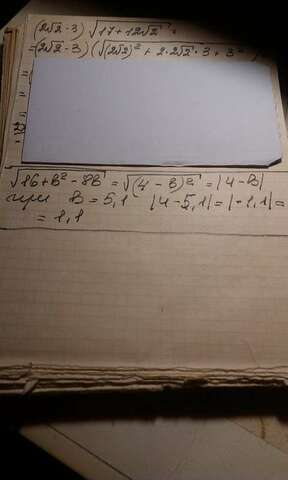 (2√2 - 3) √17 + 12√2 =
= (2√2 - 3) (√(2√2)² + 2 · 2√2 · 3 + 3
√16 + B² - 8B = √(4 - B)² = |4 - B|
при B = 5,1 |4 - 5,1| = |-1,1| =
= 1,1